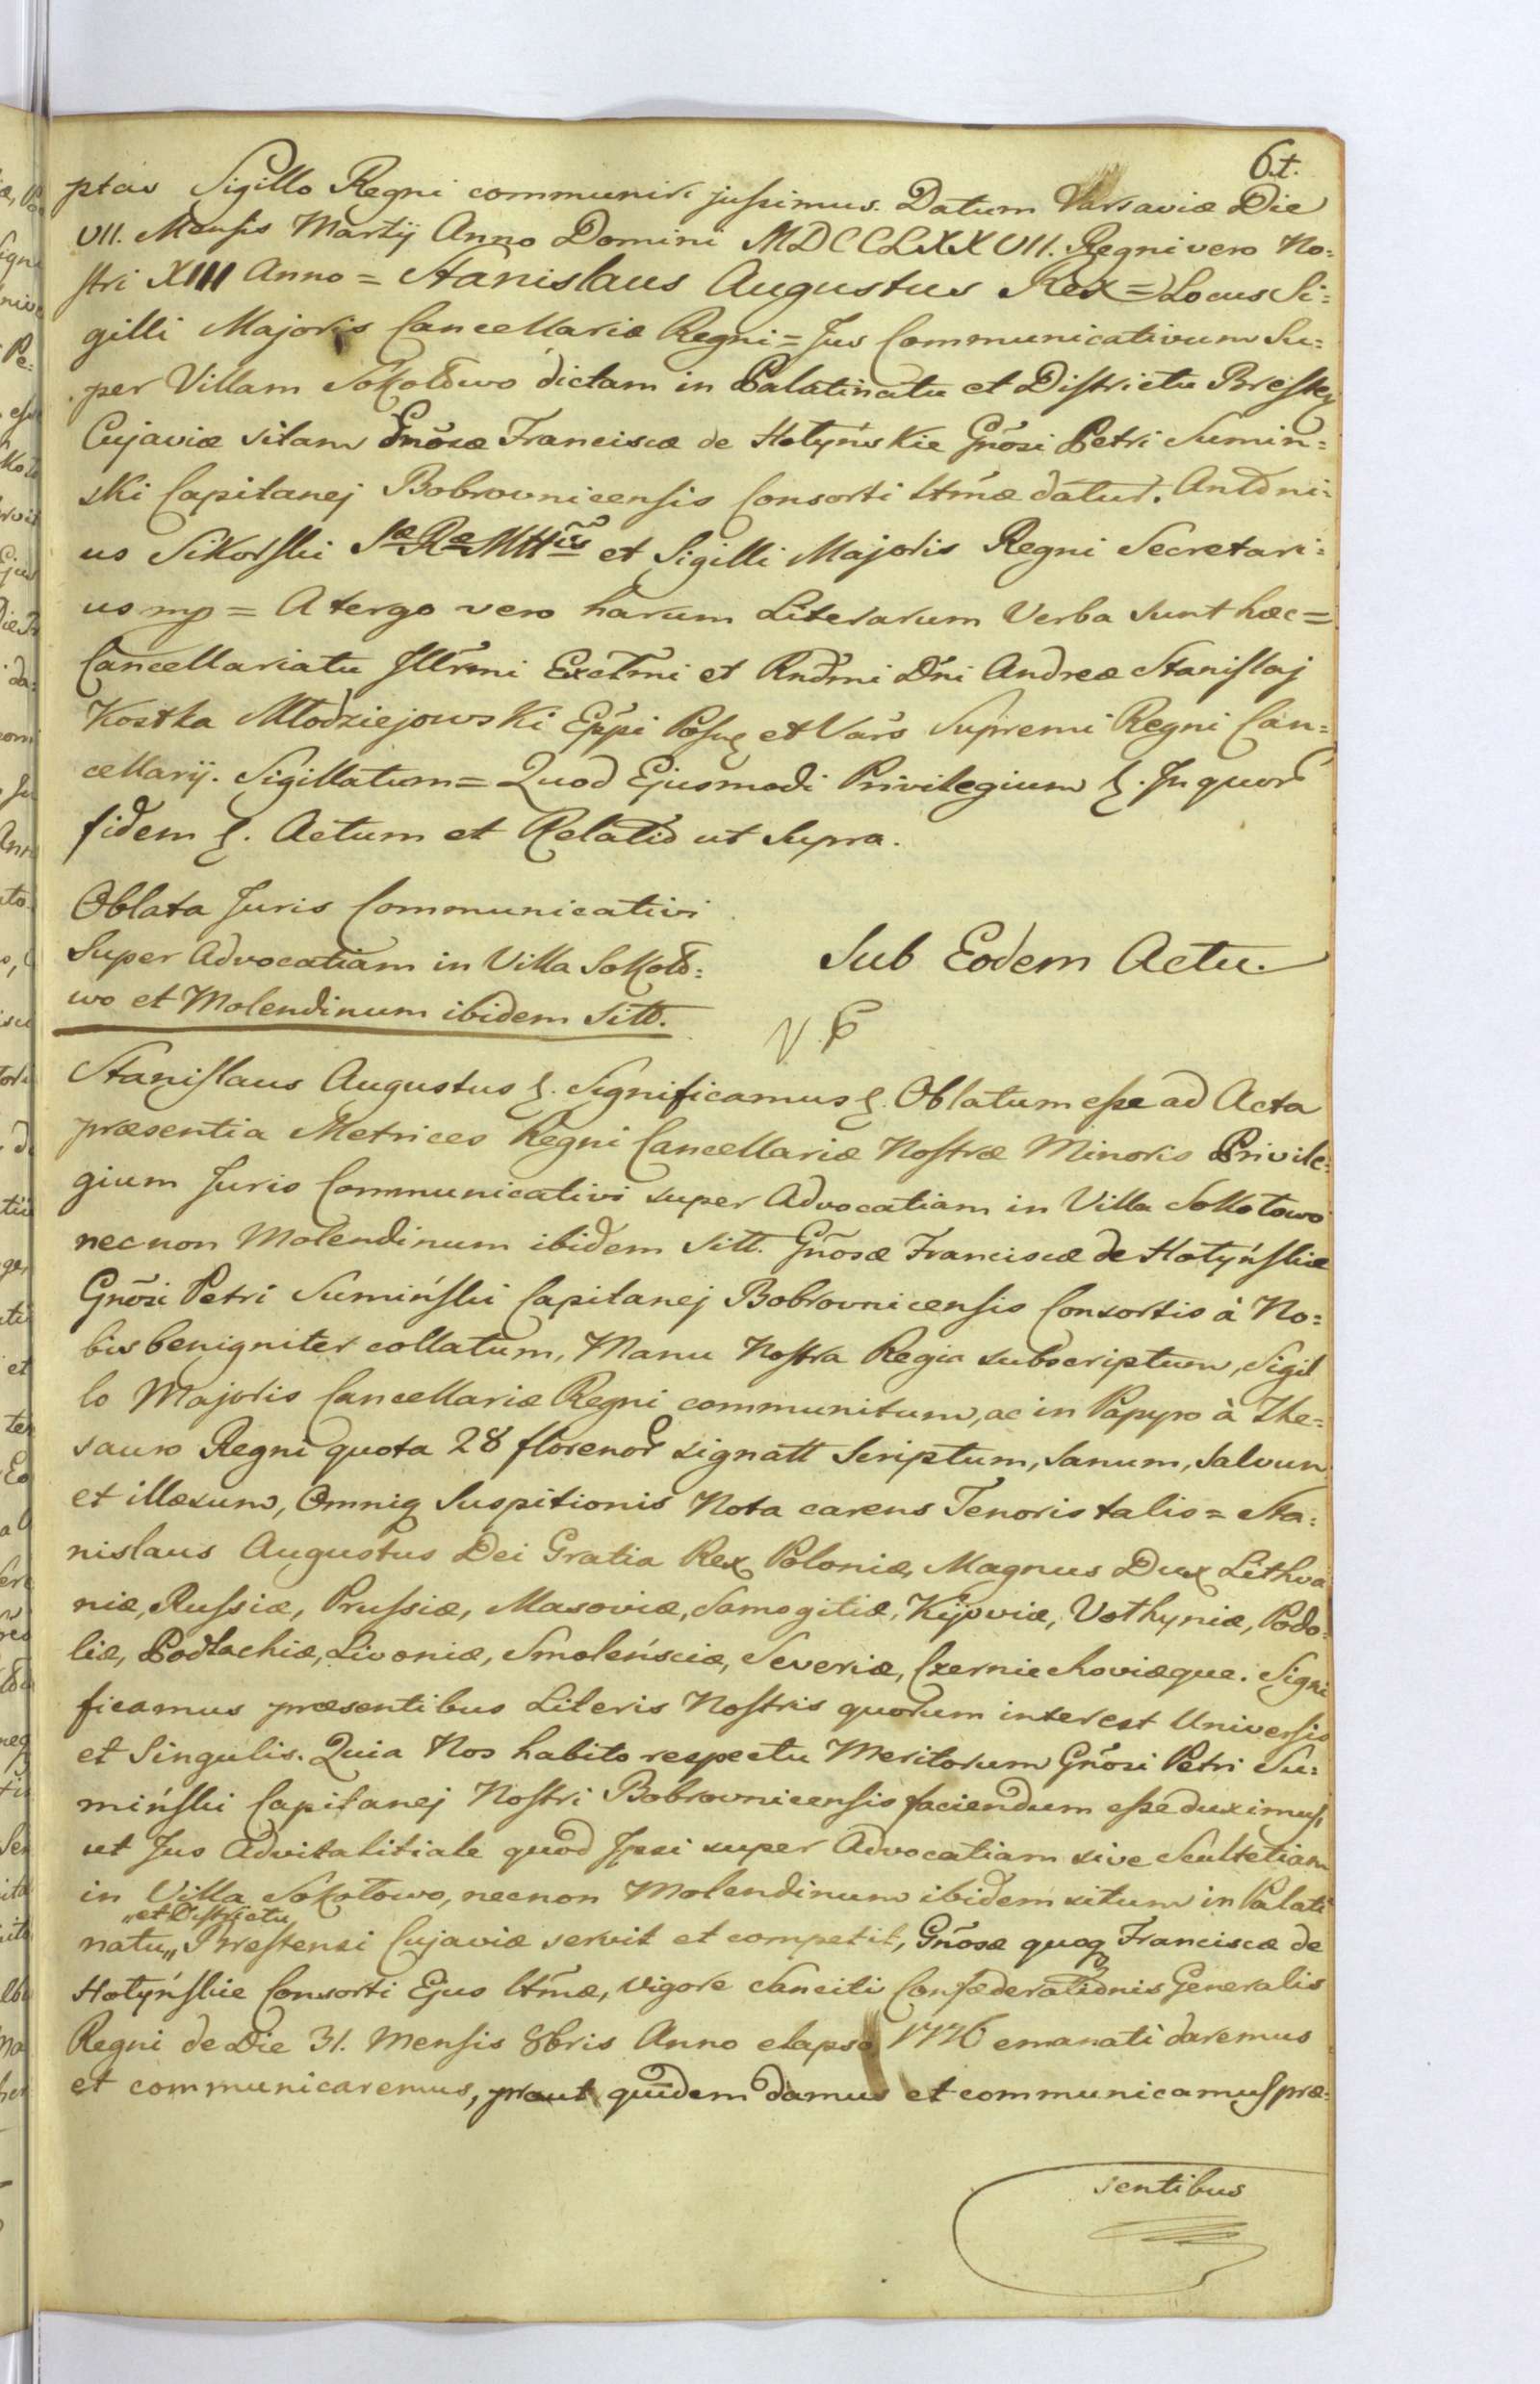 6.t.
ptas Sigillo Regni communiri jussimus. Datum Varsaviæ Die
VII. Mensis Martij Anno Domini MDCCLXXVII. Regni vero No=
stri XIII Anno = Stanislaus Augustus Rex = Locus Si=
gilli Majoris Cancellariæ Regni = Jus Communicativum Su=
per Villam Sokołowo dictam in Palatinatu et Districtu Brestẽ
Cujaviæ sitam Gnõsæ Franciscæ de Hotyńskie Gnõsi Petri Sumin=
ski Capitanej Bobrovnicensis Consorti Ltm̃æ datur. Antoni=
us Sikorski Sæ Ræ Mttis et Sigilli Majoris Regni Secretari=
us mp = A tergo vero harum Literarum Verba sunt hæc =
Cancellariatu Illr̃mi Excłm̃i et Rndm̃i Dñi Andreæ Stanislaj
Kostka Młodziejowski Epp̃i Posñ et Vars̃ Supremi Regni Can=
cellarij. Sigillatum = Quod Ejusmodi Privilegium &. In quor
fidem &. Actum et Relatio ut Supra.
Oblata Juris Communicativi
Super Advocatiam in Villa Sokoło=
wo et Molendinum ibidem Sitt.
Sub Eodem Actu.
Stanislaus Augustus &. Significamus &. Oblatum esse ad Acta
præsentia Metrices Regni Cancellariæ Nostræ Minoris Privile=
gium Juris Communicativi super Advocatiam in Villa Sokołowo
necnon Molendinum ibidem Sitt. Gnõsæ Franciscæ de Hotyńskie
Gnõsi Petri Sumiński Capitanej Bobrovnicensis Consortis à No=
bis benigniter collatum, Manu Nostra Regia subscriptum, Sigil
lo Majoris Cancellariæ Regni communitum, ac in Papyro à The=
sauro Regni quota 28 florenor signatt Scriptum, Sanum, Salvum
et illæsum, Omniq Suspitionis Nota carens Tenoris talis = Sta=
nislaus Augustus Dei Gratia Rex Poloniæ, Magnus Dux Lithva
niæ, Russiæ, Prussiæ, Masoviæ, Samogitiæ, Kijoviæ, Vołhyniæ, Podo=
liæ, Podlachiæ, Livoniæ, Smoleńsciæ, Severiæ, Czerniechoviæque. Signi
ficamus præsentibus Literis Nostris quorum interest Universis
et Singulis. Quia Nos habito respectu Meritorum Gnõsi Petri Su=
miński Capitanej Nostri Bobrovnicensis faciendum esse duximus,
ut Jus Advitalitiale quod Ipsi super Advocatiam sive Scultetiam
in Villa Sokołowo, necnon Molendinum ibidem situm in Palati
„et Districtu
natu„ Brestensi Cujaviæ servit et competit, Gnõsæ quoq Franciscæ de
Hotyńskie Consorti Ejus Ltm̃æ, vigore Sanciti Confæderationis Generalis
Regni de Die 31. Mensis 8bris Anno elapso 1776 emanati daremus
et communicaremus, prout quidem damus et communicamus præ=
sentibus